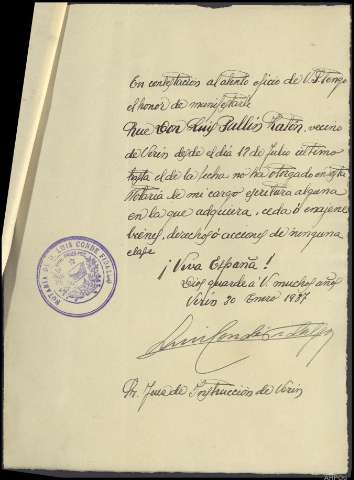 En contestación al atento oficio de V. S. tengo
el honor de manifestarle
Que Don Luis Pullin Raton, vecino
de Verin desde el día 18 de Julio último
hasta el de la fecha no ha otorgado en esta
Notaria de mi cargo escritura alguna
en la que adquiera, ceda ó enajene
bienes, derechos ó acciones de ninguna
clase
¡Viva España!
Dios guarde á V. muchos años
Verin 30 Enero 1937
Luis Conde
NOTARIA DE D. LUIS CONDE FIDALGO
Sr. Juez de Instrucción de Verin